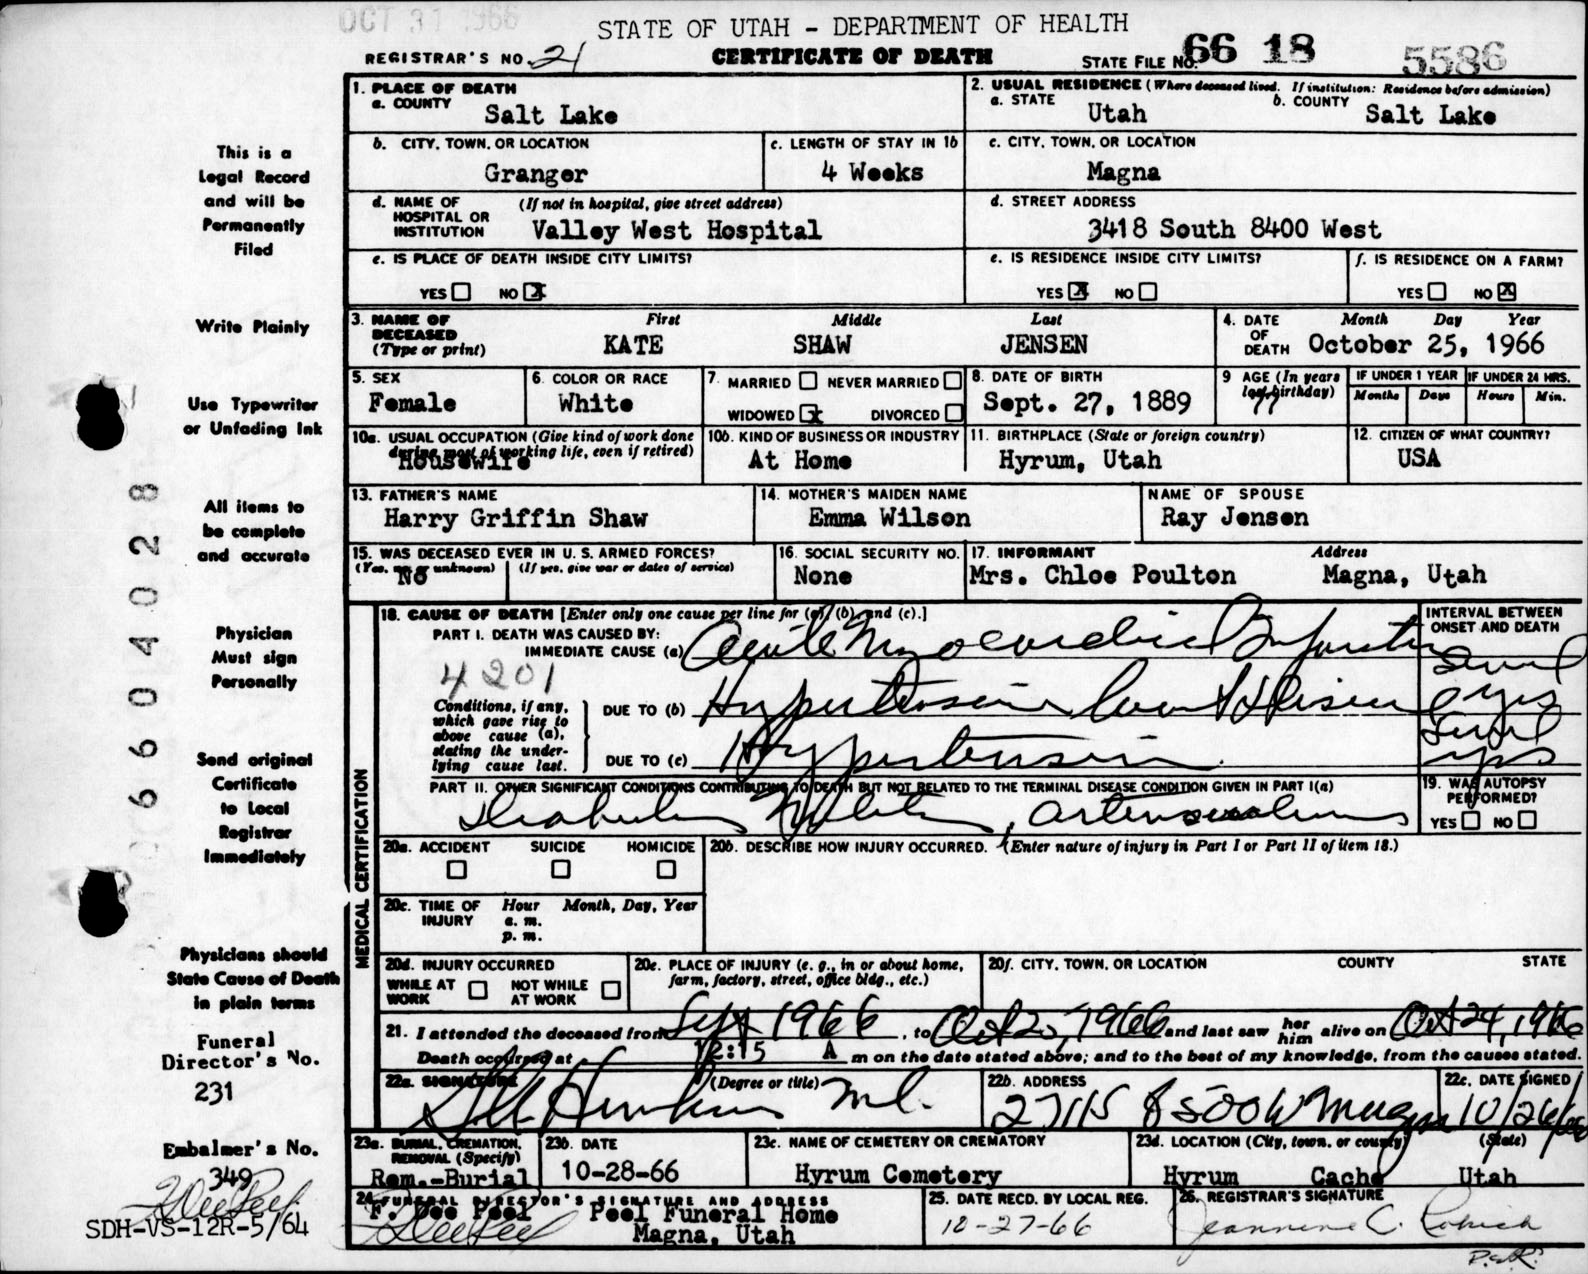 OCT 31 1966
STATE OF UTAH - DEPARTMENT OF HEALTH
REGISTRAR'S NO. 21 CERTIFICATE OF DEATH STATE FILE NO. 66 18 5586
This is a
Legal Record
and will be
Permanently
Filed
Write Plainly
Use Typewriter
or Unfading Ink
All items to
be complete
and accurate
Physician
Must sign
Personally
Send original
Certificate
to Local
Registrar
Immediately
Physicians should
State Cause of Death
in plain terms
Funeral
Director's No.
231
Embalmer's No.
349
SDH-VS-12R-5/64
066040028
1. PLACE OF DEATH
a. COUNTY Salt Lake
2. USUAL RESIDENCE (Where deceased lived. If institution: Residence before admission)
a. STATE Utah b. COUNTY Salt Lake
b. CITY, TOWN, OR LOCATION Granger
c. LENGTH OF STAY IN 1b 4 Weeks
c. CITY, TOWN, OR LOCATION Magna
d. NAME OF HOSPITAL OR INSTITUTION (If not in hospital, give street address) Valley West Hospital
d. STREET ADDRESS 3418 South 8400 West
e. IS PLACE OF DEATH INSIDE CITY LIMITS?
YES NO X
e. IS RESIDENCE INSIDE CITY LIMITS?
YES X NO
f. IS RESIDENCE ON A FARM?
YES NO X
3. NAME OF DECEASED (Type or print) First Middle Last
KATE SHAW JENSEN
4. DATE OF DEATH Month Day Year
October 25, 1966
5. SEX Female
6. COLOR OR RACE White
7. MARRIED NEVER MARRIED
WIDOWED X DIVORCED
8. DATE OF BIRTH Sept. 27, 1889
9 AGE (In years last birthday) 77
IF UNDER 1 YEAR Months Days
IF UNDER 24 HRS. Hours Min.
10a. USUAL OCCUPATION (Give kind of work done during most of working life, even if retired) Housewife
10b. KIND OF BUSINESS OR INDUSTRY At Home
11. BIRTHPLACE (State or foreign country) Hyrum, Utah
12. CITIZEN OF WHAT COUNTRY? USA
13. FATHER'S NAME Harry Griffin Shaw
14. MOTHER'S MAIDEN NAME Emma Wilson
NAME OF SPOUSE Ray Jensen
15. WAS DECEASED EVER IN U. S. ARMED FORCES?
(Yes, no or unknown) No (If yes, give war or dates of service)
16. SOCIAL SECURITY NO. None
17. INFORMANT Address
Mrs. Chloe Poulton Magna, Utah
MEDICAL CERTIFICATION
18. CAUSE OF DEATH [Enter only one cause per line for (a), (b), and (c).]
INTERVAL BETWEEN ONSET AND DEATH
PART I. DEATH WAS CAUSED BY:
IMMEDIATE CAUSE (a) Acute Myocardial Infarction
4201
Conditions, if any, which gave rise to above cause (a), stating the underlying cause last.
DUE TO (b) Hypertensive Heart Disease yrs
DUE TO (c) Hypertension yrs
PART II. OTHER SIGNIFICANT CONDITIONS CONTRIBUTING TO DEATH BUT NOT RELATED TO THE TERMINAL DISEASE CONDITION GIVEN IN PART I(a)
Diabetes Mellitus, arteriosclerosis
19. WAS AUTOPSY PERFORMED?
YES NO
20a. ACCIDENT SUICIDE HOMICIDE
20b. DESCRIBE HOW INJURY OCCURRED. (Enter nature of injury in Part I or Part II of item 18.)
20c. TIME OF INJURY Hour Month, Day, Year
a. m.
p. m.
20d. INJURY OCCURRED
WHILE AT WORK NOT WHILE AT WORK
20e. PLACE OF INJURY (e. g., in or about home, farm, factory, street, office bldg., etc.)
20f. CITY, TOWN, OR LOCATION COUNTY STATE
21. I attended the deceased from Sept 1966, to Oct 25, 1966 and last saw her him alive on Oct 24, 1966
Death occurred at 12:15 A m on the date stated above; and to the best of my knowledge, from the causes stated.
22a. SIGNATURE (Degree or title) M.D.
22b. ADDRESS 2711 S 8500 W Magna
22c. DATE SIGNED 10/26/66
23a. BURIAL, CREMATION, REMOVAL (Specify) Rem.-Burial
23b. DATE 10-28-66
23c. NAME OF CEMETERY OR CREMATORY Hyrum Cemetery
23d. LOCATION (City, town, or county) (State)
Hyrum Cache Utah
24. FUNERAL DIRECTOR'S SIGNATURE AND ADDRESS
F. Dee Peel Peel Funeral Home
Magna, Utah
25. DATE RECD. BY LOCAL REG. 10-27-66
26. REGISTRAR'S SIGNATURE
Jeannine C.